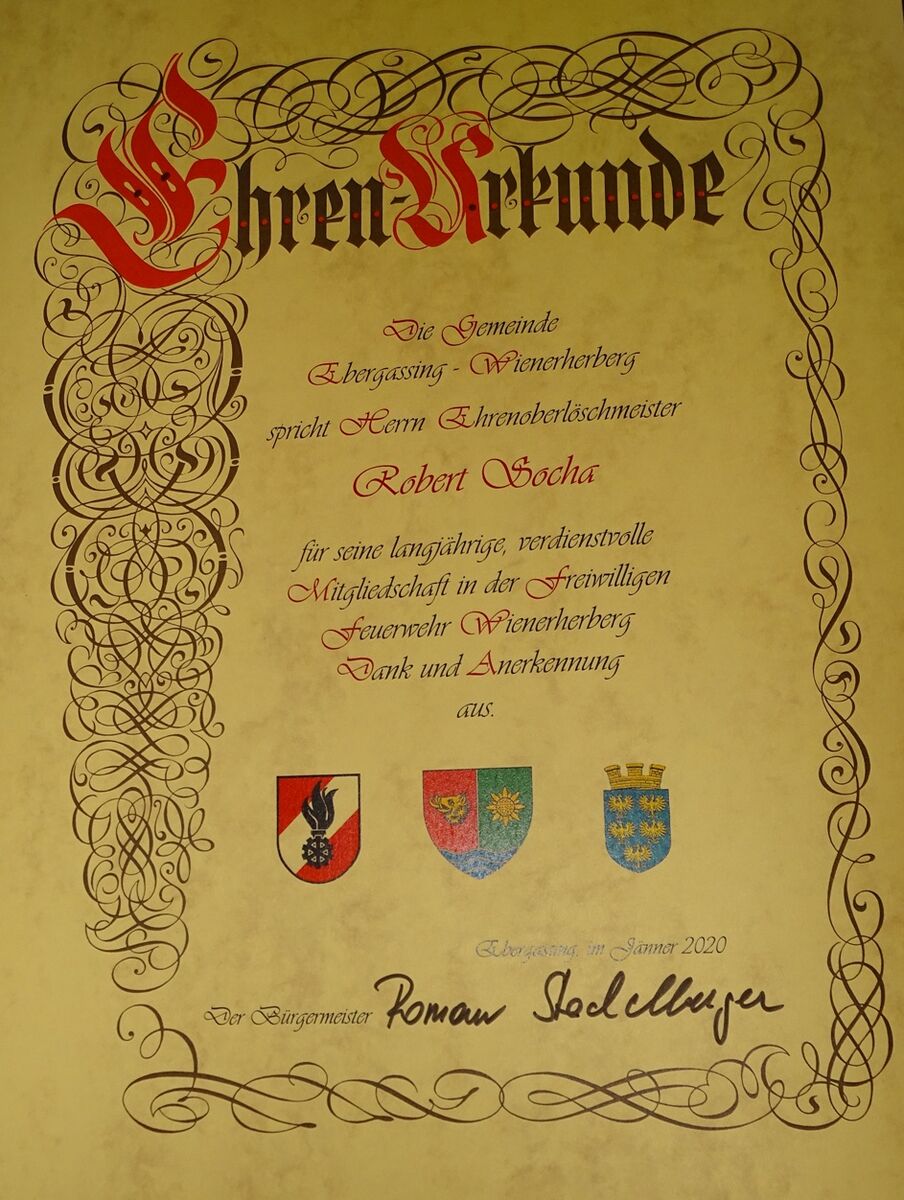 Ehren-Urkunde
Die Gemeinde
Ebergassing - Wienerherberg
spricht Herrn Ehrenoberlöschmeister
Robert Socha
für seine langjährige, verdienstvolle
Mitgliedschaft in der Freiwilligen
Feuerwehr Wienerherberg
Dank und Anerkennung
aus.
Ebergassing, im Jänner 2020
Der Bürgermeister Roman Stachelberger